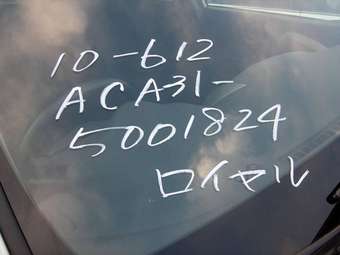 10-612
ACA31-
5001824
ロイヤル